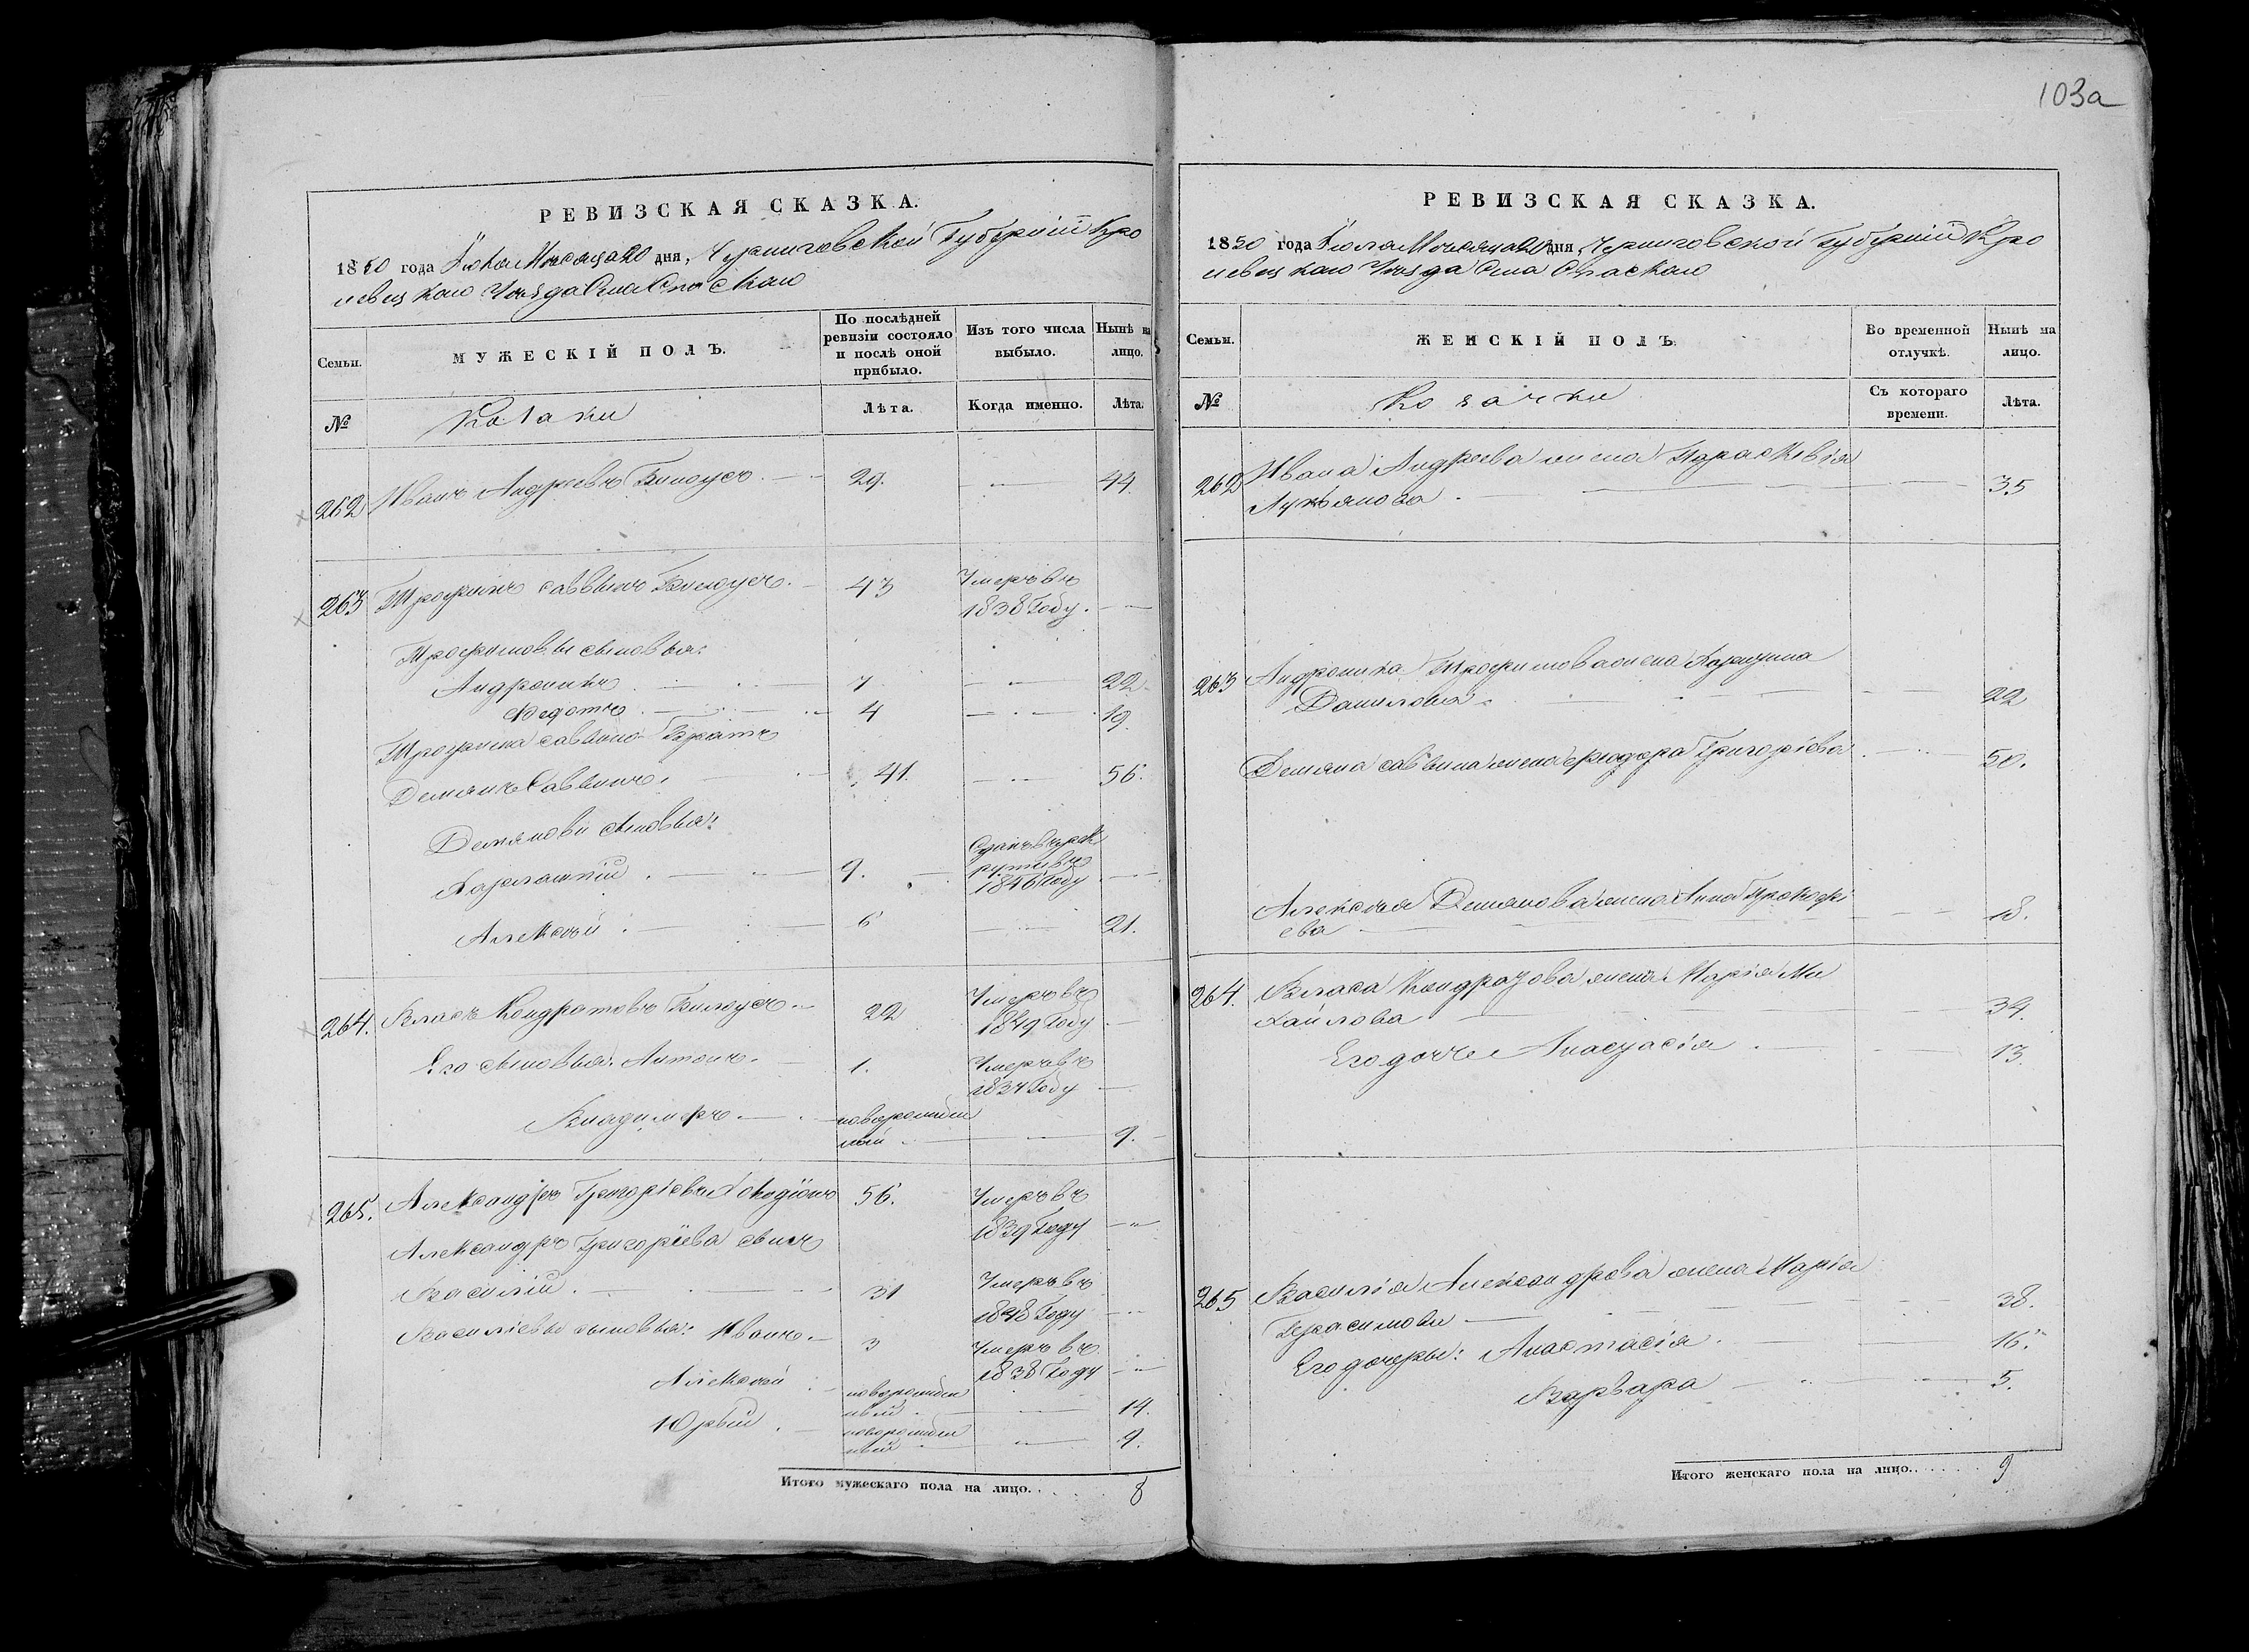 103а
РЕВИЗСКАЯ СКАЗКА.
1850 года Июля Месяца 20 дня, Черниговской Губернии Кро
левецкаго Уезда Села Спаскаго
Семьи.
МУЖЕСКІЙ ПОЛЪ.
По послѣдней ревизіи состояло и послѣ оной прибыло.
Изъ того числа выбыло.
Нынѣ на лицо.
№
Козаки
Лѣта.
Когда именно.
Лѣта.
262 Иванъ Андреевъ Билоусъ 29. 44.
263 Трофимъ Саввинъ Билоусъ. 43 Умеръ въ
1838 Году.
Трофимовы сыновья:
Андроникъ 7 22
Федотъ 4 19.
Трофима Саввина Братъ
Демянъ Саввинъ. 41. 56.
Демяновы сыновья:
Харлампій 9. Сданъ въ рек
руты въ
1846 Году
Алексей 6 21.
264. Власъ Кондратовъ Билоусъ 22 Умеръ въ
1849 Году
Его сыновья: Антонъ. 1. Умеръ въ
1837 Году
Владимеръ новорожден
ный 9.
265. Александръ Григоріевъ 56. Умеръ въ
1839 Году
Александръ Григоріева сынъ
Василій 31 Умеръ въ
1848 Году
Василіевы сыновья: Иванъ 3 Умеръ въ
1838 Году
Алексей новорожден
ный 14.
Юрій новорожден
ный 9.
Итого мужескаго пола на лицо. 8
РЕВИЗСКАЯ СКАЗКА.
1850 года Июля Месяца 20 дня, Черниговской Губернии Кро
левецкаго Уезда Села Спаскаго
Семьи.
ЖЕНСКІЙ ПОЛЪ.
Во временной отлучкѣ.
Нынѣ на лицо.
№
Козачки
Съ котораго времени.
Лѣта.
262 Ивана Андреева жена Параскевія
Лукьянова 35
263 Андроника Трофимова жена
Данилова 22
Демяна Саввина жена Григоріева 50.
Алексея Демянова жена Анна Прокофі
ева 18.
264. Власа Кондратова жена Марія Ми
хайлова 34.
Его дочь Анастасія 13
265 Василія Александрова жена Марія
Герасимова 38.
Его дочеры: Анастасія 16
Варвара 5.
Итого женскаго пола на лицо. 9